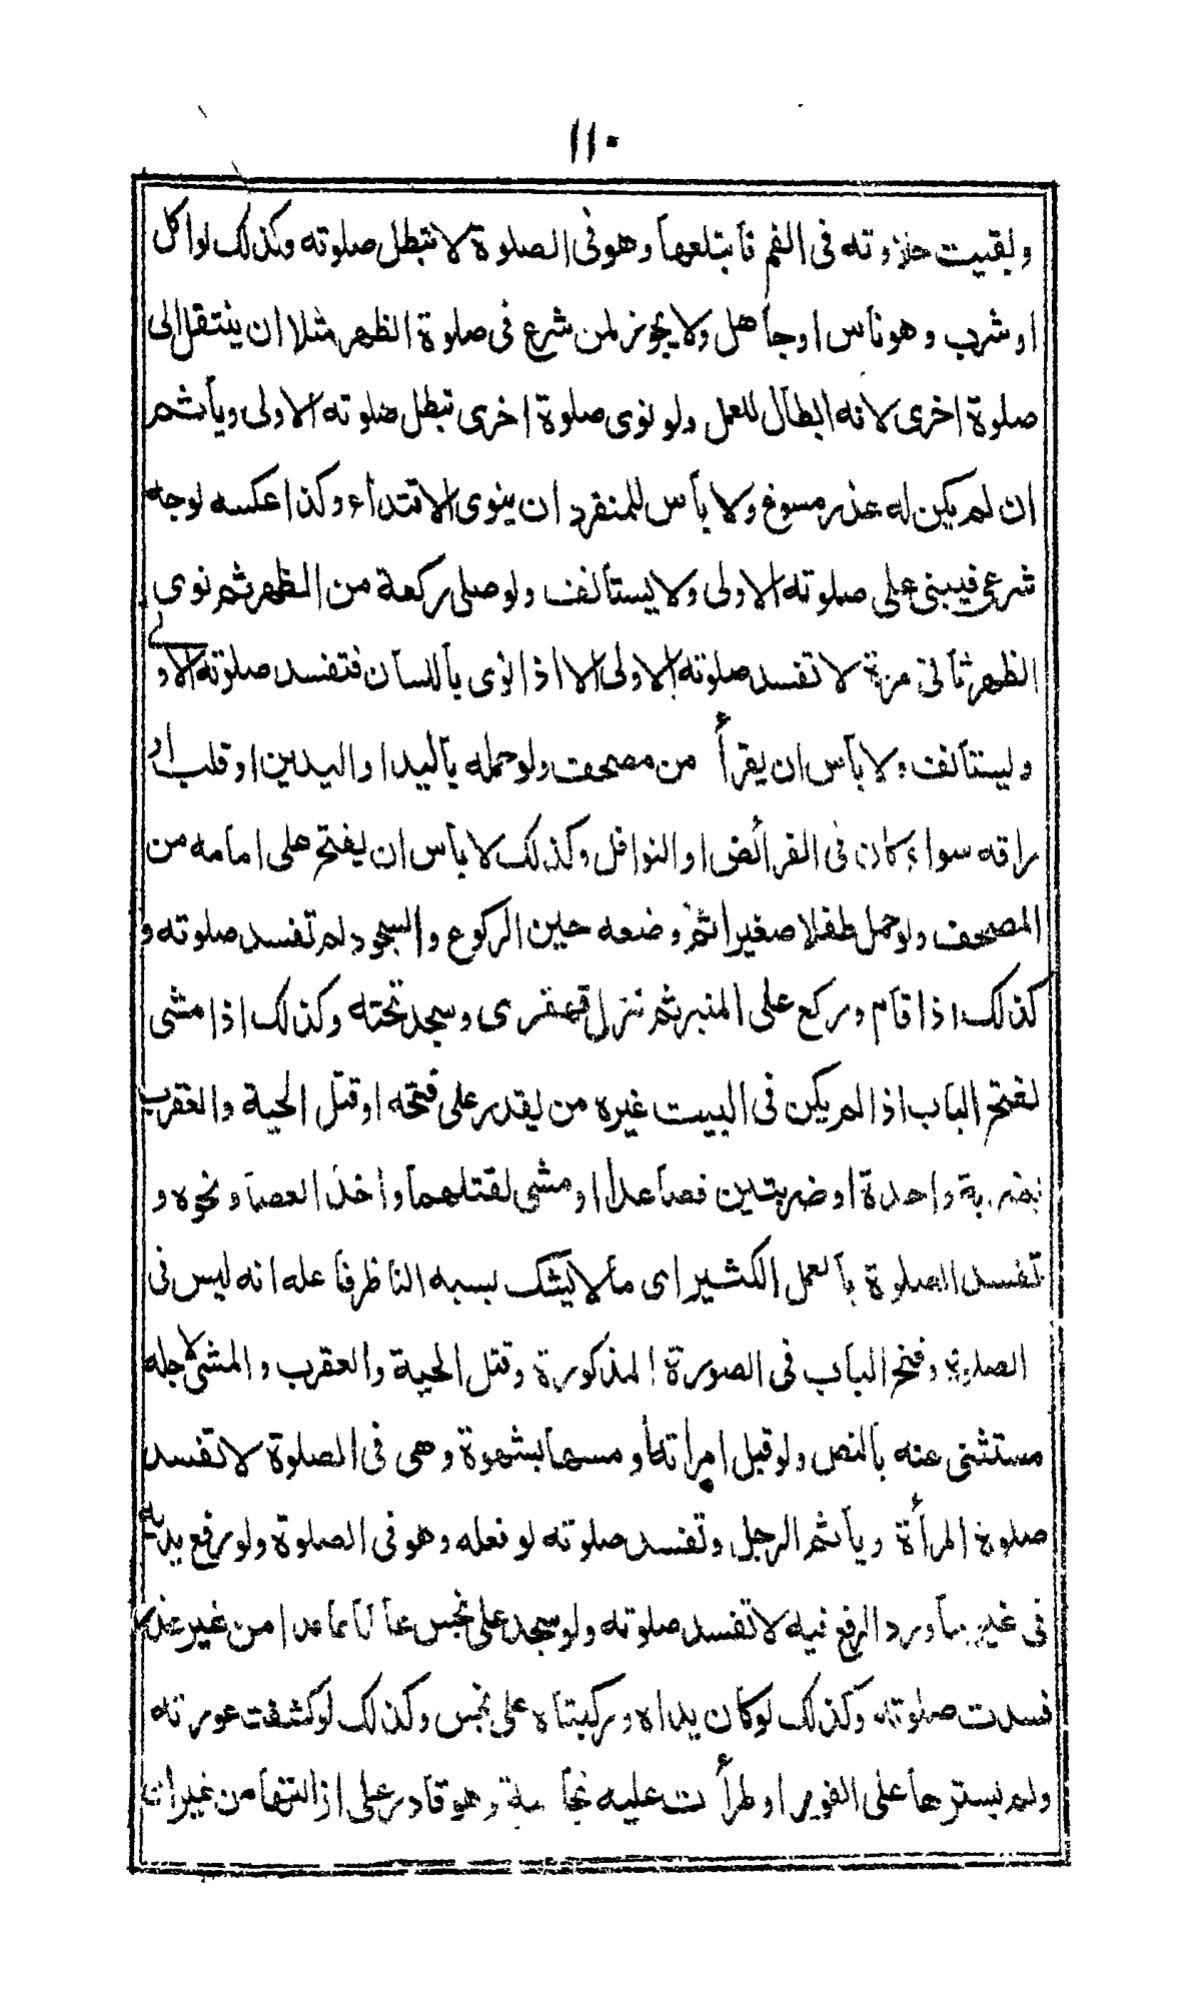 ١١٠
وبقيت حلاوته فى الفم فابتلعها وهو فى الصلوة لا تبطل صلوته وكذلك لو اكل
او شرب وهو ناس او جاهل ولا يجوز لمن شرع فى صلوة الظهر مثلا ان ينتقل الى
صلوة اخرى لانه ابطال للعمل ولو نوى صلوة اخرى تبطل صلوته الاولى ويأثم
ان لم يكن له عذر مسوغ ولا بأس للمنفرد ان ينوى الاقتداء وكذا عكسه لوجه
شرعى فيبنى على صلوته الاولى ولا يستأنف ولو صلى ركعة من الظهر ثم نوى
الظهر ثانى مرة لا تفسد صلوته الاولى الا اذا نوى باللسان فتفسد صلوته الاولى
وليستأنف ولا بأس ان يقرأ من مصحف ولو حمله باليد او اليدين او قلب او
راقه سواء كان فى الفرائض او النوافل وكذلك لا بأس ان يفتح على امامه من
المصحف ولو حمل طفلا صغيرا ثم وضعه حين الركوع والسجود لم تفسد صلوته و
كذلك اذا قام وركع على المنبر ثم نزل قهقرى وسجد تحته وكذلك اذا مشى
لفتح الباب اذا لم يكن فى البيت غيره من يقدر على فتحه او قتل الحية والعقرب
بضربة واحدة او ضربتين فصاعدا او مشى لقتلهما واخذ العصا ونحوه و
تفسد الصلوة بالعمل الكثير اى ما لا يشك بسببه الناظر فاعله انه ليس فى
الصلوة وفتح الباب فى الصورة المذكورة وقتل الحية والعقرب والمشى لاجله
مستثنى عنه بالنص ولو قبل امراته او مسها بشهوة وهى فى الصلوة لا تفسد
صلوة المرأة ويأثم الرجل وتفسد صلوته لو فعله وهو فى الصلوة ولو رفع يديه
فى غير ما ورد الرفع فيه لا تفسد صلوته ولو سجد على نجس عالما عامدا من غير عذر
فسدت صلوته وكذلك لو كان يداه وركبتاه على نجس وكذلك لو كشفت عورته
ولم يسترها على الفور او طرأت عليه نجاسة وهو قادر على ازالتها من غير ان